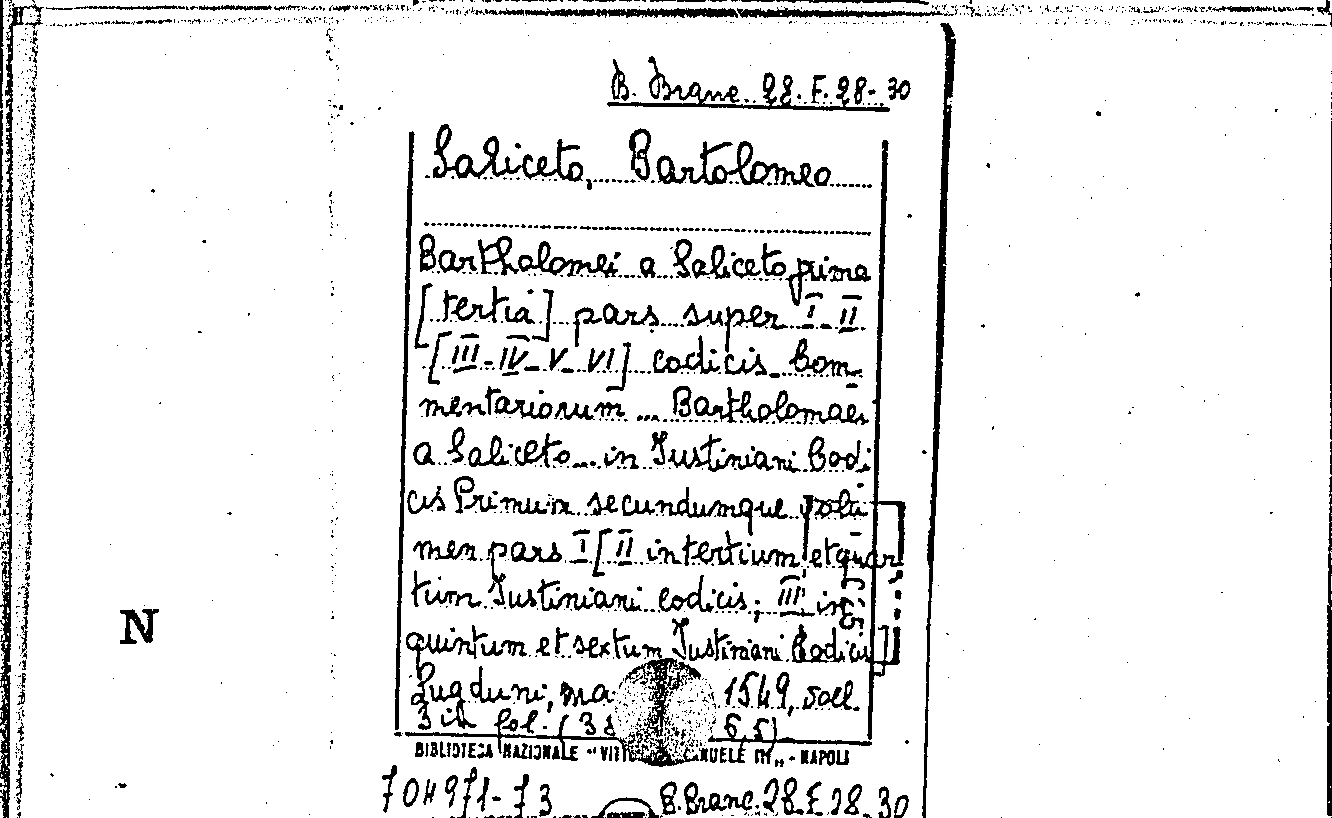 B. Branc. 28. F. 28-30
Saliceto, Bartolomeo
Bartholomei a Saliceto prima
[tertia] pars super I-II
[III-IV-V-VI] codicis. Com-
mentariorum ... Bartholomaei
a Saliceto ... in Justiniani Codi
cis Primum secundumque volu
men pars I [II in tertium et quar
tium Justiniani codicis; III in
quintum et sextum Justiniani Codicis]
Lugduni, 1549, voll.
3 in fol. (38 6,5)
BIBLIOTECA NAZIONALE "VITTORIO EMANUELE III" - NAPOLI
N
704971-73
B. Branc. 28. F. 28-30